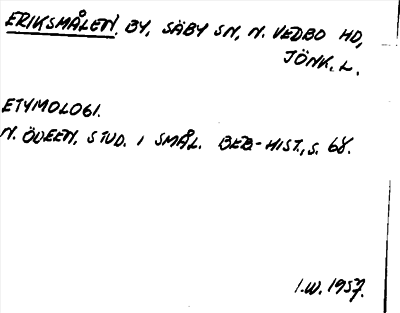 ERIKSMÅLEN, BY, SÄBY SN, N. VEDBO HD,
JÖNK. L.
ETYMOLOGI.
N. ÖDEEN, STUD. I SMÅL. BEB-HIST., S. 68.
I.W. 1957.